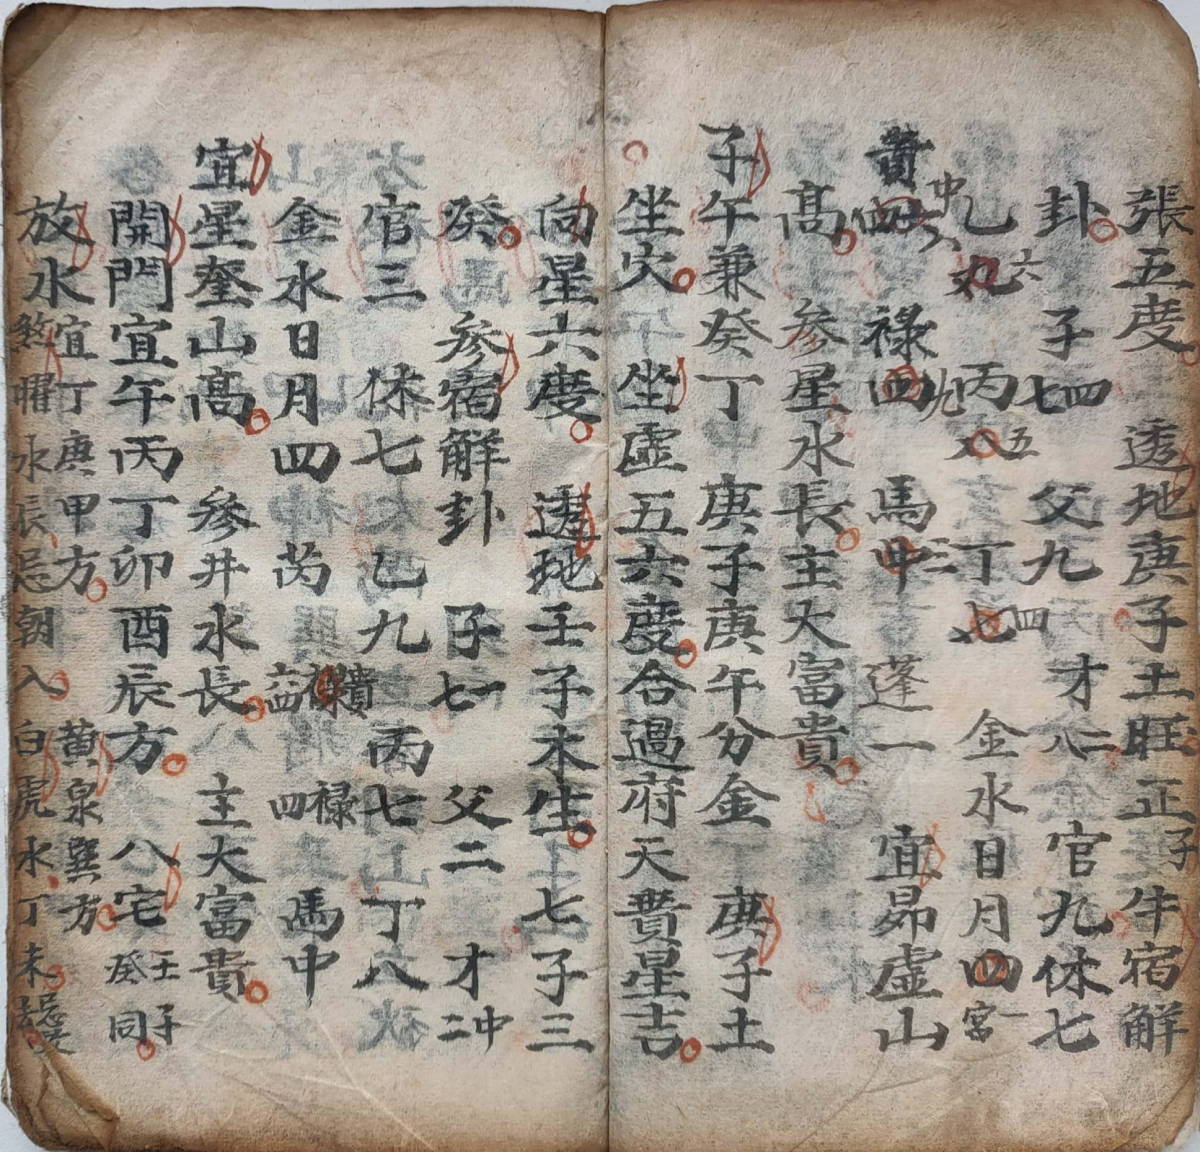 張五度透地庚子土旺正子牛宿解
卦子七四父九四才八二官九休七
乙六丙八五丁七金水日月四一宮
黃中六祿四九馬中三蓬一宜昴虛山
高參星水長主大富貴
子午兼癸丁庚子庚午分金庚子土
坐穴坐虛五六度合過府天貴星吉
向星六度透地壬子木生七子三
癸參宿解卦子七一父二才二中
官三休七乙九丙七丁八
金水日月四芮六祿四馬中
宜星奎山高參井水長主大富貴
開門宜午丙丁卯酉辰方八宅壬子癸同
放水宜丁庚甲方黃泉巽方
煞曜水辰忌朝入白虎水丁未忌